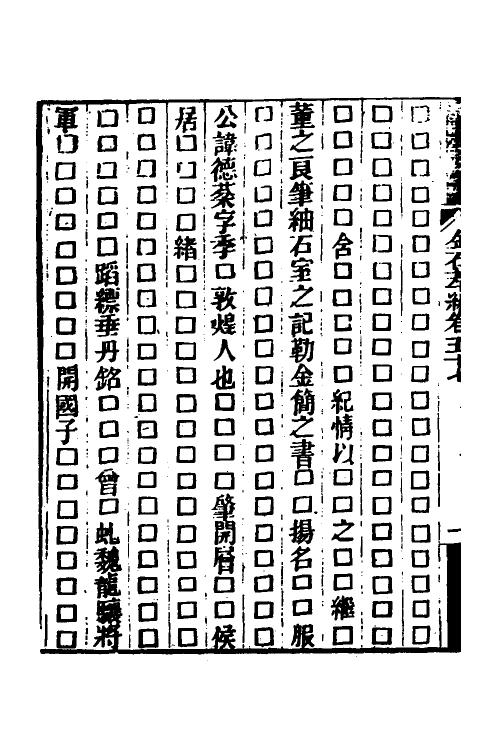 金石萃編卷五十七　一
□□□□□□□□□□□□□□□□□□□□□
□□□□□□□□□□□□□□□□□□□□□
□□□□□舍□□□□□紀情以□□之□□繼□
董之良筆紬石室之記勒金簡之書□□揚名□□服
□□□□□□□□□□□□□□□□□□□□□
公諱德棻字季□敦煌人也□□□□肇開眉□□侯
居□□□□緒□□□□□□□□□□□□□□□
□□□□□□□□□□□□□□□□□□□□□
□□□□□□蹈縹垂丹銘□□□曾□虬魏龍驤將
軍□□□□□□□□□開國子□□□□□□□□